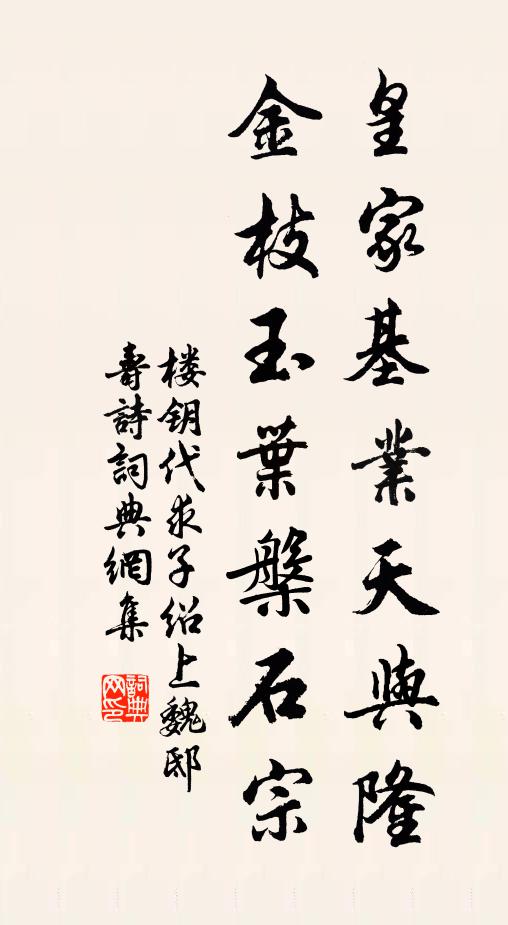 皇家基業天與隆
金枝玉葉槃石宗
楼钥代求子绍上魏邸
壽詩詞典網集
詞典网印